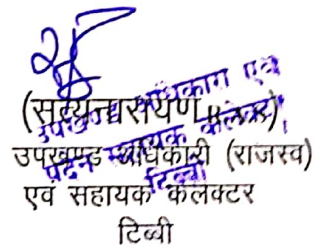 (सत्यनारायण
उपखण्ड अधिकारी (राजस्व)
एवं सहायक कलेक्टर
टिब्बी
उपखण्ड अधिकारी एवं
पदेन सहायक कलेक्टर
टिब्बी